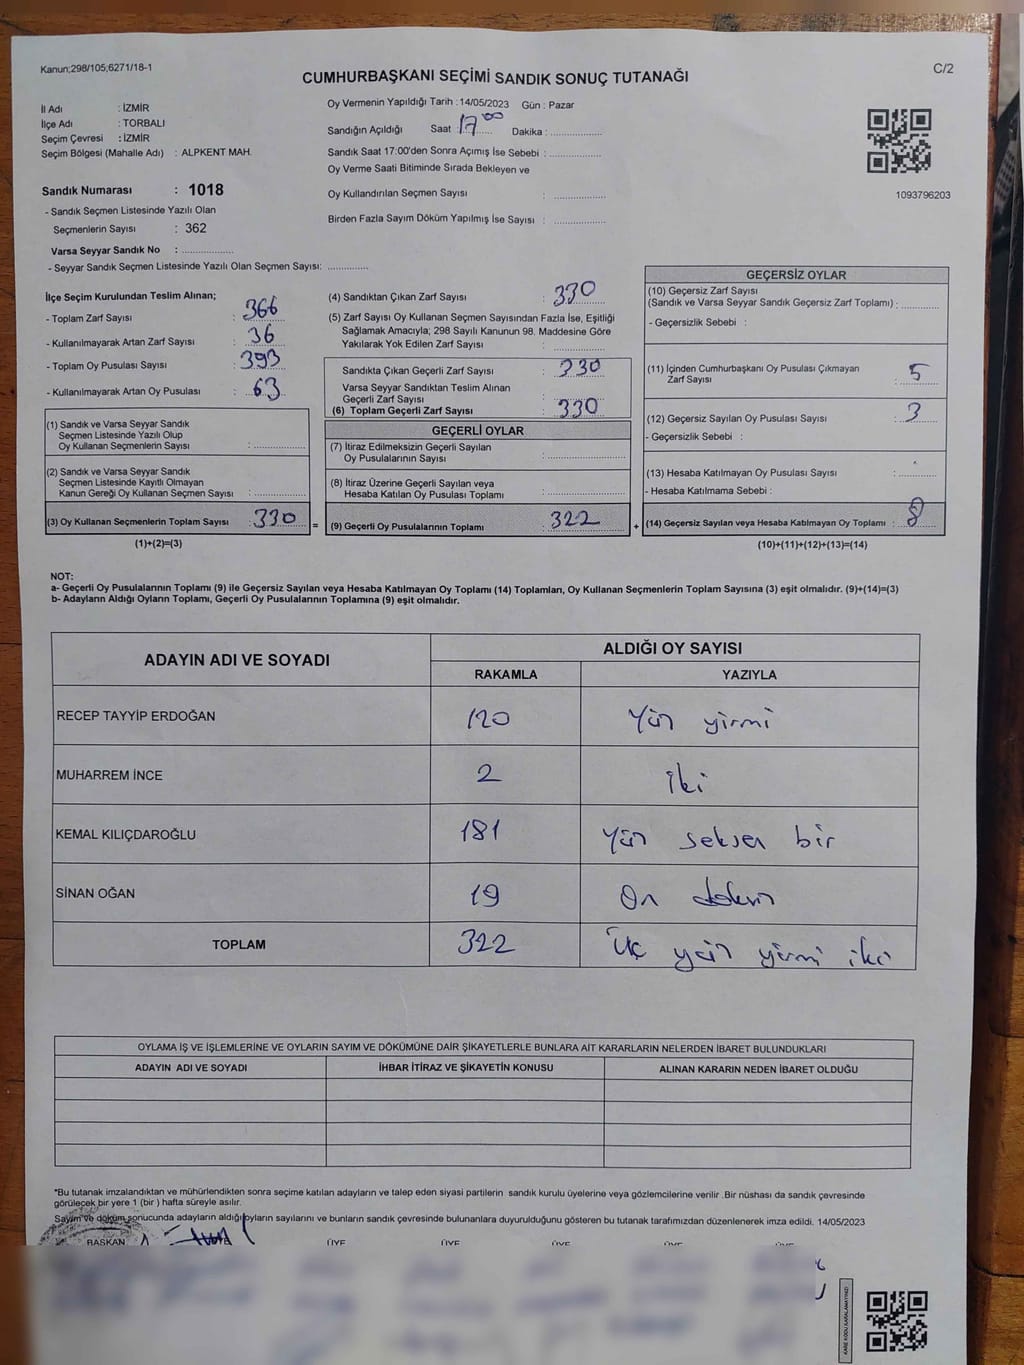 Kanun;298/105,6271/18-1
CUMHURBAŞKANI SEÇİMİ SANDIK SONUÇ TUTANAĞI
C/2
İl Adı : İZMİR
İlçe Adı : TORBALI
Seçim Çevresi : İZMİR
Seçim Bölgesi (Mahalle Adı) : ALPKENT MAH.
Sandık Numarası : 1018
- Sandık Seçmen Listesinde Yazılı Olan
Seçmenlerin Sayısı : 362
Varsa Seyyar Sandık No : ..................
- Seyyar Sandık Seçmen Listesinde Yazılı Olan Seçmen Sayısı: ..............
Oy Vermenin Yapıldığı Tarih :14/05/2023 Gün : Pazar
Sandığın Açıldığı Saat 17 00 Dakika : ..................
Sandık Saat 17:00'den Sonra Açımış İse Sebebi : ..................
Oy Verme Saati Bitiminde Sırada Bekleyen ve
Oy Kullandırılan Seçmen Sayısı : ..................
Birden Fazla Sayım Döküm Yapılmış İse Sayısı : ..................
1093796203
İlçe Seçim Kurulundan Teslim Alınan;
- Toplam Zarf Sayısı : 366
- Kullanılmayarak Artan Zarf Sayısı : 36
- Toplam Oy Pusulası Sayısı : 393
- Kullanılmayarak Artan Oy Pusulası : 63
(1) Sandık ve Varsa Seyyar Sandık
Seçmen Listesinde Yazılı Olup
Oy Kullanan Seçmenlerin Sayısı : ..................
(2) Sandık ve Varsa Seyyar Sandık
Seçmen Listesinde Kayıtlı Olmayan
Kanun Gereği Oy Kullanan Seçmen Sayısı : ..................
(3) Oy Kullanan Seçmenlerin Toplam Sayısı : 330 =
(1)+(2)=(3)
(4) Sandıktan Çıkan Zarf Sayısı : 330
(5) Zarf Sayısı Oy Kullanan Seçmen Sayısından Fazla İse, Eşitliği
Sağlamak Amacıyla; 298 Sayılı Kanunun 98. Maddesine Göre
Yakılarak Yok Edilen Zarf Sayısı : ..................
Sandıkta Çıkan Geçerli Zarf Sayısı : 330
Varsa Seyyar Sandıktan Teslim Alınan
Geçerli Zarf Sayısı : ..................
(6) Toplam Geçerli Zarf Sayısı : 330
GEÇERLİ OYLAR
(7) İtiraz Edilmeksizin Geçerli Sayılan
Oy Pusulalarının Sayısı : ..................
(8) İtiraz Üzerine Geçerli Sayılan veya
Hesaba Katılan Oy Pusulası Toplamı : ..................
(9) Geçerli Oy Pusulalarının Toplamı : 322 +
GEÇERSİZ OYLAR
(10) Geçersiz Zarf Sayısı
(Sandık ve Varsa Seyyar Sandık Geçersiz Zarf Toplamı) : ..............
- Geçersizlik Sebebi :
(11) İçinden Cumhurbaşkanı Oy Pusulası Çıkmayan
Zarf Sayısı : 5
(12) Geçersiz Sayılan Oy Pusulası Sayısı : 3
- Geçersizlik Sebebi :
(13) Hesaba Katılmayan Oy Pusulası Sayısı : ..............
- Hesaba Katılmama Sebebi :
(14) Geçersiz Sayılan veya Hesaba Katılmayan Oy Toplamı : 8
(10)+(11)+(12)+(13)=(14)
NOT:
a- Geçerli Oy Pusulalarının Toplamı (9) ile Geçersiz Sayılan veya Hesaba Katılmayan Oy Toplamı (14) Toplamları, Oy Kullanan Seçmenlerin Toplam Sayısına (3) eşit olmalıdır. (9)+(14)=(3)
b- Adayların Aldığı Oyların Toplamı, Geçerli Oy Pusulalarının Toplamına (9) eşit olmalıdır.
ADAYIN ADI VE SOYADI
ALDIĞI OY SAYISI
RAKAMLA YAZIYLA
RECEP TAYYİP ERDOĞAN 120 Yüz yirmi
MUHARREM İNCE 2 iki
KEMAL KILIÇDAROĞLU 181 Yüz seksen bir
SİNAN OĞAN 19 On dokuz
TOPLAM 322 Üç yüz yirmi iki
OYLAMA İŞ VE İŞLEMLERİNE VE OYLARIN SAYIM VE DÖKÜMÜNE DAİR ŞİKAYETLERLE BUNLARA AİT KARARLARIN NELERDEN İBARET BULUNDUKLARI
ADAYIN ADI VE SOYADI İHBAR İTİRAZ VE ŞİKAYETİN KONUSU ALINAN KARARIN NEDEN İBARET OLDUĞU
*Bu tutanak imzalandıktan ve mühürlendikten sonra seçime katılan adayların ve talep eden siyasi partilerin sandık kurulu üyelerine veya gözlemcilerine verilir .Bir nüshası da sandık çevresinde
görülecek bir yere 1 (bir ) hafta süreyle asılır.
Sayım ve döküm sonucunda adayların aldığı oyların sayılarını ve bunların sandık çevresinde bulunanlara duyurulduğunu gösteren bu tutanak tarafımızdan düzenlenerek imza edildi. 14/05/2023
BAŞKAN ÜYE ÜYE ÜYE ÜYE ÜYE